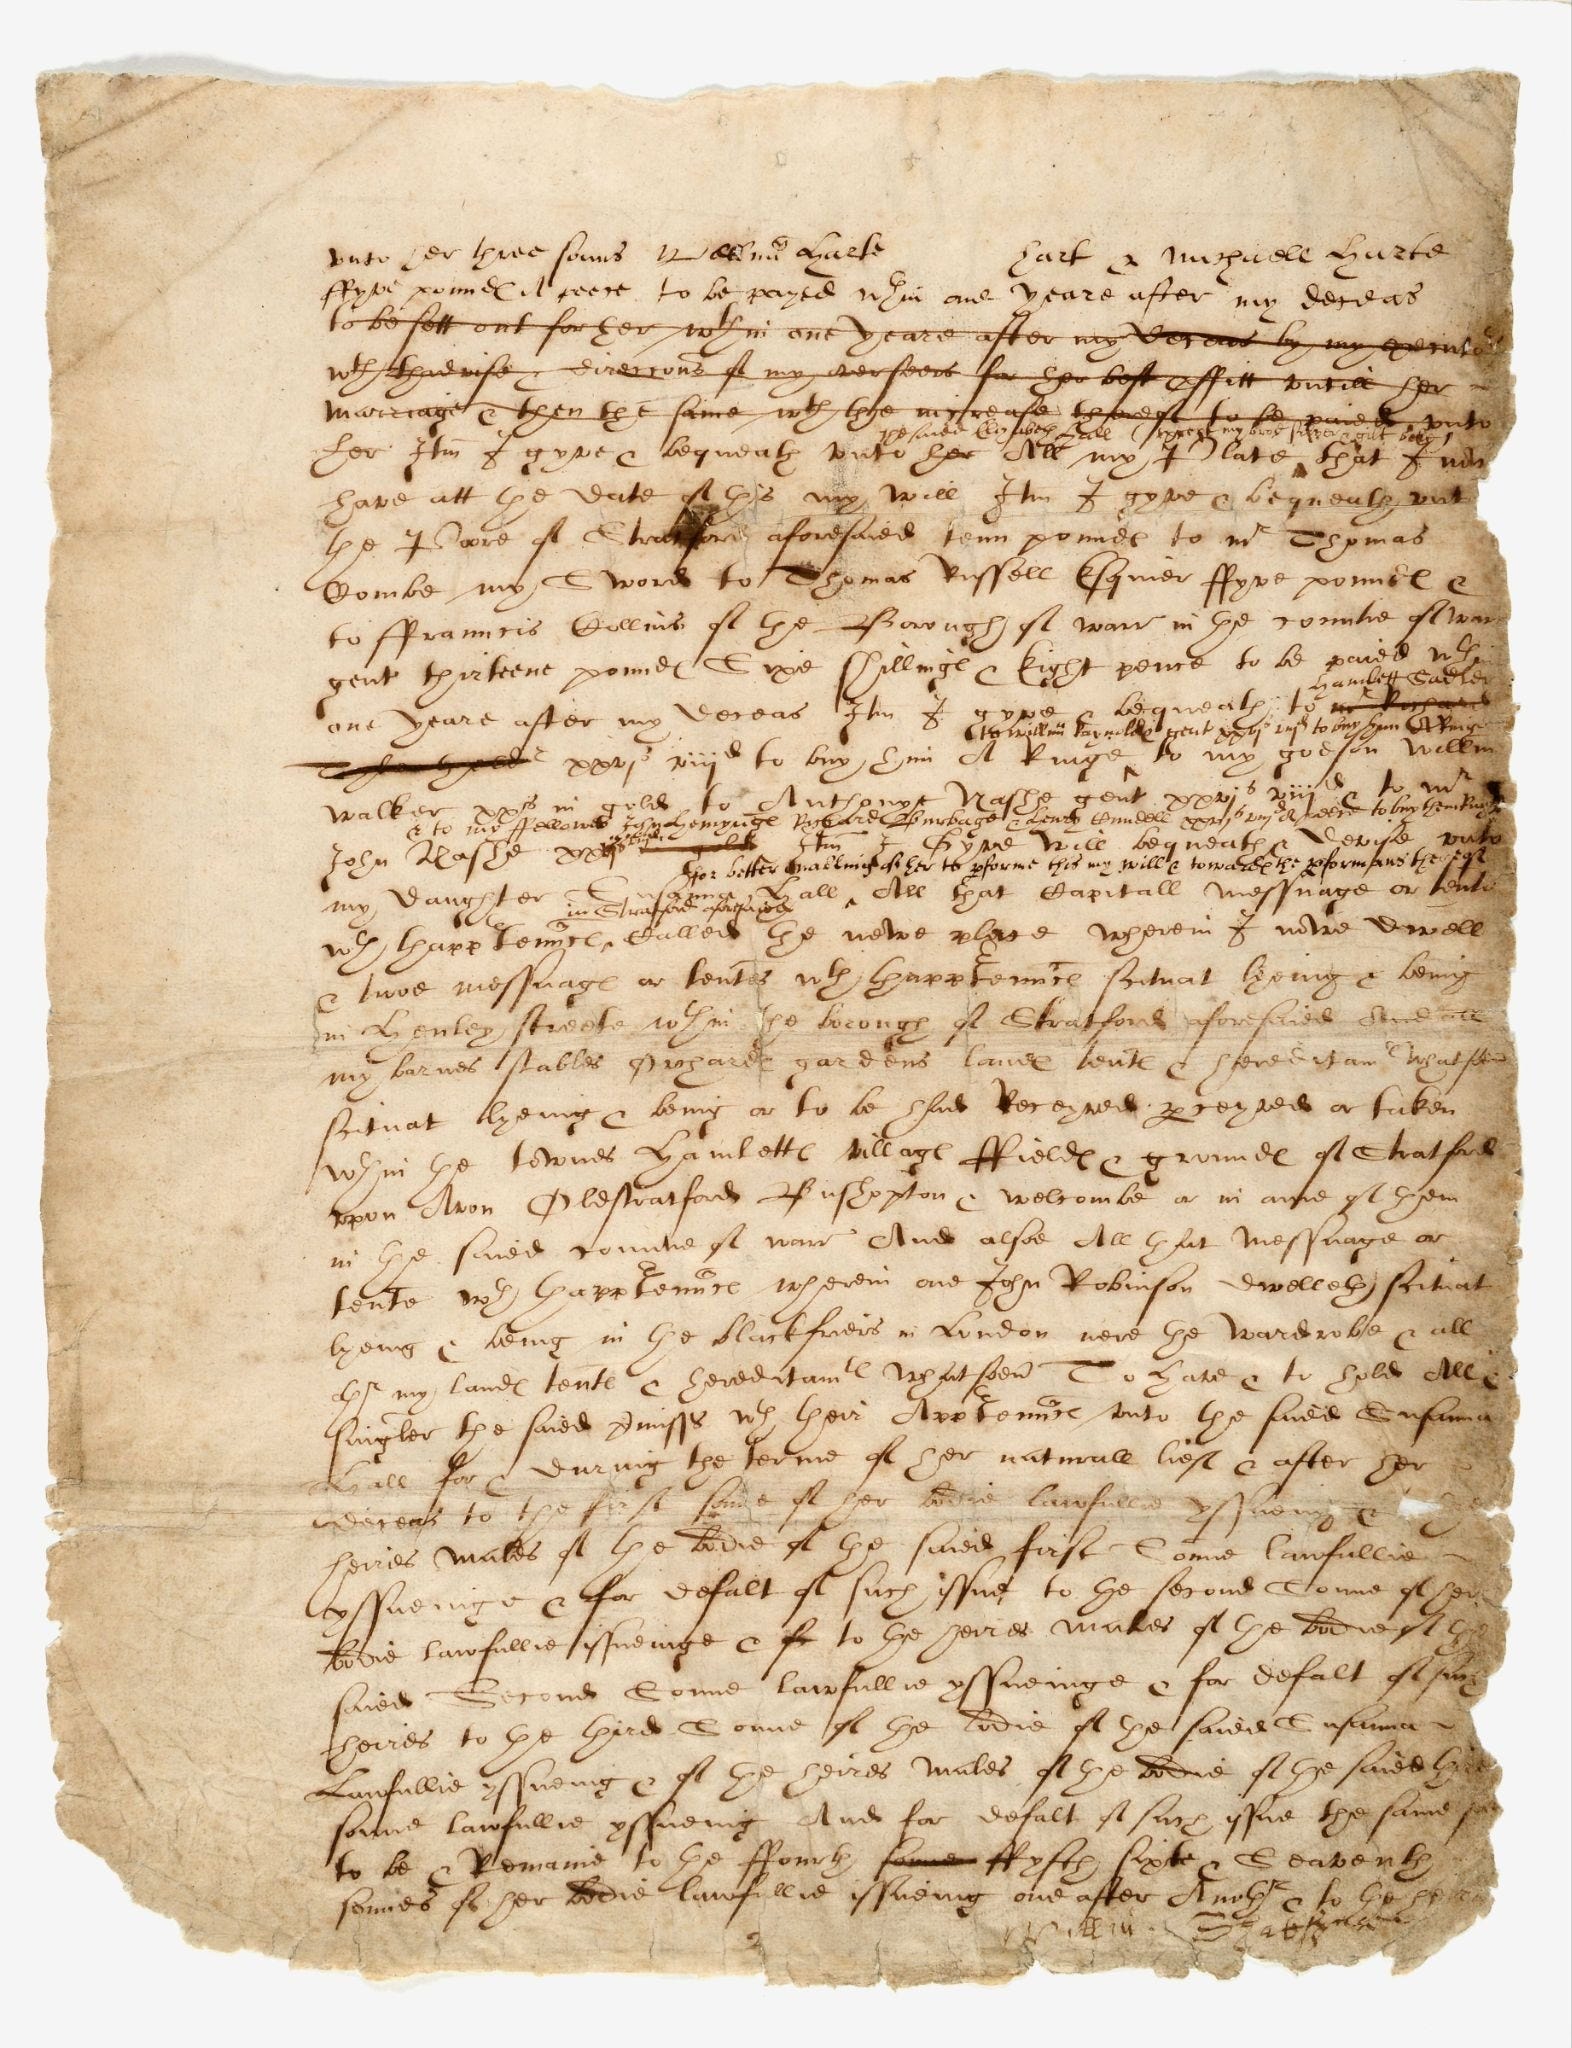 vnto her three sonns Willm Harte hart & Michaell Harte
ffyve poundes A peece to be payed wthin one yeare after my deceas
to be sett out for her wthin one yeare after my deceas by my executors
wth thadvise & direccons of my overseers for her best proffitt vntill her
marriage & then the same wth the increase thereof to be paied vnto
the saied Elizabeth Hall (except my brod silver & gilt bole)
her Itm I gyve & bequeath vnto her All my Plate that I now
have att the date of this my will Itm I gyve & bequeath vnto
the Poore of Stratford aforesaied tenn poundes to mr Thomas
Combe my Sword to Thomas Russell Esquier ffyve poundes &
to ffrauncis Collins of the Borough of warr in the countie of warr
gent thirteene poundes Sixe shillinges & Eight pence to be paied wthin
Hamlett Sadler
one yeare after my deceas Itm I gyve & bequeath to mr Richard
to Willm Raynoldes gent xxvjs viijd to buy him A Ringe
Tyler thelder xxvjs viijd to buy him A Ringe to my godson Willm
walker xxs in gold to Anthonye Nashe gent xxvjs viijd & to mr
& to my ffellowes John Hemynges Richard Burbage & Henry Cundell xxvjs viijd A peece to buy them Ringes
John Nashe xxvjs viijd in gold Itm I Gyve will bequeath & Devise vnto
for better enabling of her to pforme this my will & towardes the pformans thereof
my daughter Susanna Hall All that Capitall messuage or tente
in Stratford aforesaied
wth thapptenncs Called the newe place wherein I nowe dwell
& twoe messuags or tentes wth thapptenncs scituat lyeing & being
in Henley streete wthin the borough of Stratford aforesaied And all
my barnes stables Orchardes gardens landes tentes & hereditamts whatsoevr
scituat lyeing & being or to be had Receyved pceyved or taken
wthin the townes Hamlettes villages ffieldes & groundes of Stratford
vpon Avon Oldstratford Bushopton & welcombe or in anie of them
in the saied countie of warr And alsoe All that Messuage or
tente wth thapptenncs wherein one John Robinson dwelleth scituat
lyeing & being in the blackfriers in London nere the Wardrobe & all
othr my landes tentes & hereditamts whatsoevr To Have & to hold All &
singler the saied pmisss wth their Apptenncs vnto the saied Susanna
Hall for & during the terme of her naturall lief & after her
deceas to the first sonne of her bodie lawfullie yssueing & to the
heires Males of the bodie of the saied first Sonne lawfullie
yssueinge & for defalt of such issue to the second Sonne of her
bodie lawfullie issueinge & to the heires Males of the bodie of the
saied Second Sonne lawfullie yssueinge & for defalt of such
heires to the third Sonne of the bodie of the saied Susanna
Lawfullie yssueing & of the heires Males of the bodie of the saied third
sonne lawfullie yssueing And for defalt of such issue the same soe
to be & Remaine to the ffourth sonne ffyfth sixte & Seaventh
sonnes of her bodie lawfullie issueing one after Anothr & to the heires
2
Willm Shakspere